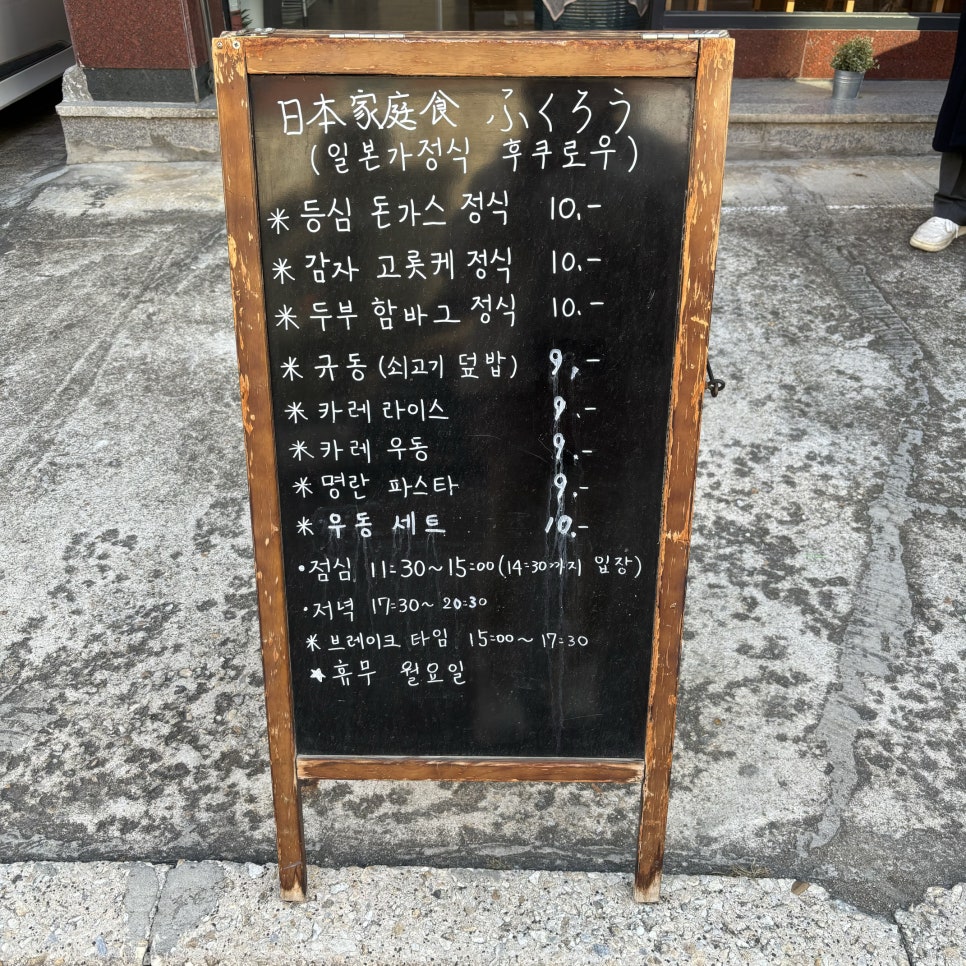 日本家庭食 ふくろう
(일본가정식 후쿠로우)
* 등심 돈가스 정식 10.-
* 감자 고롯케 정식 10.-
* 두부 함바그 정식 10.-
* 규동 (쇠고기 덮밥) 9.-
* 카레 라이스 9.-
* 카레 우동 9.-
* 명란 파스타 9.-
* 우동 세트 10.-
• 점심 11=30~15=00 (14=30까지 입장)
• 저녁 17=30~ 20=30
* 브레이크 타임 15=00~17=30
★ 휴무 월요일